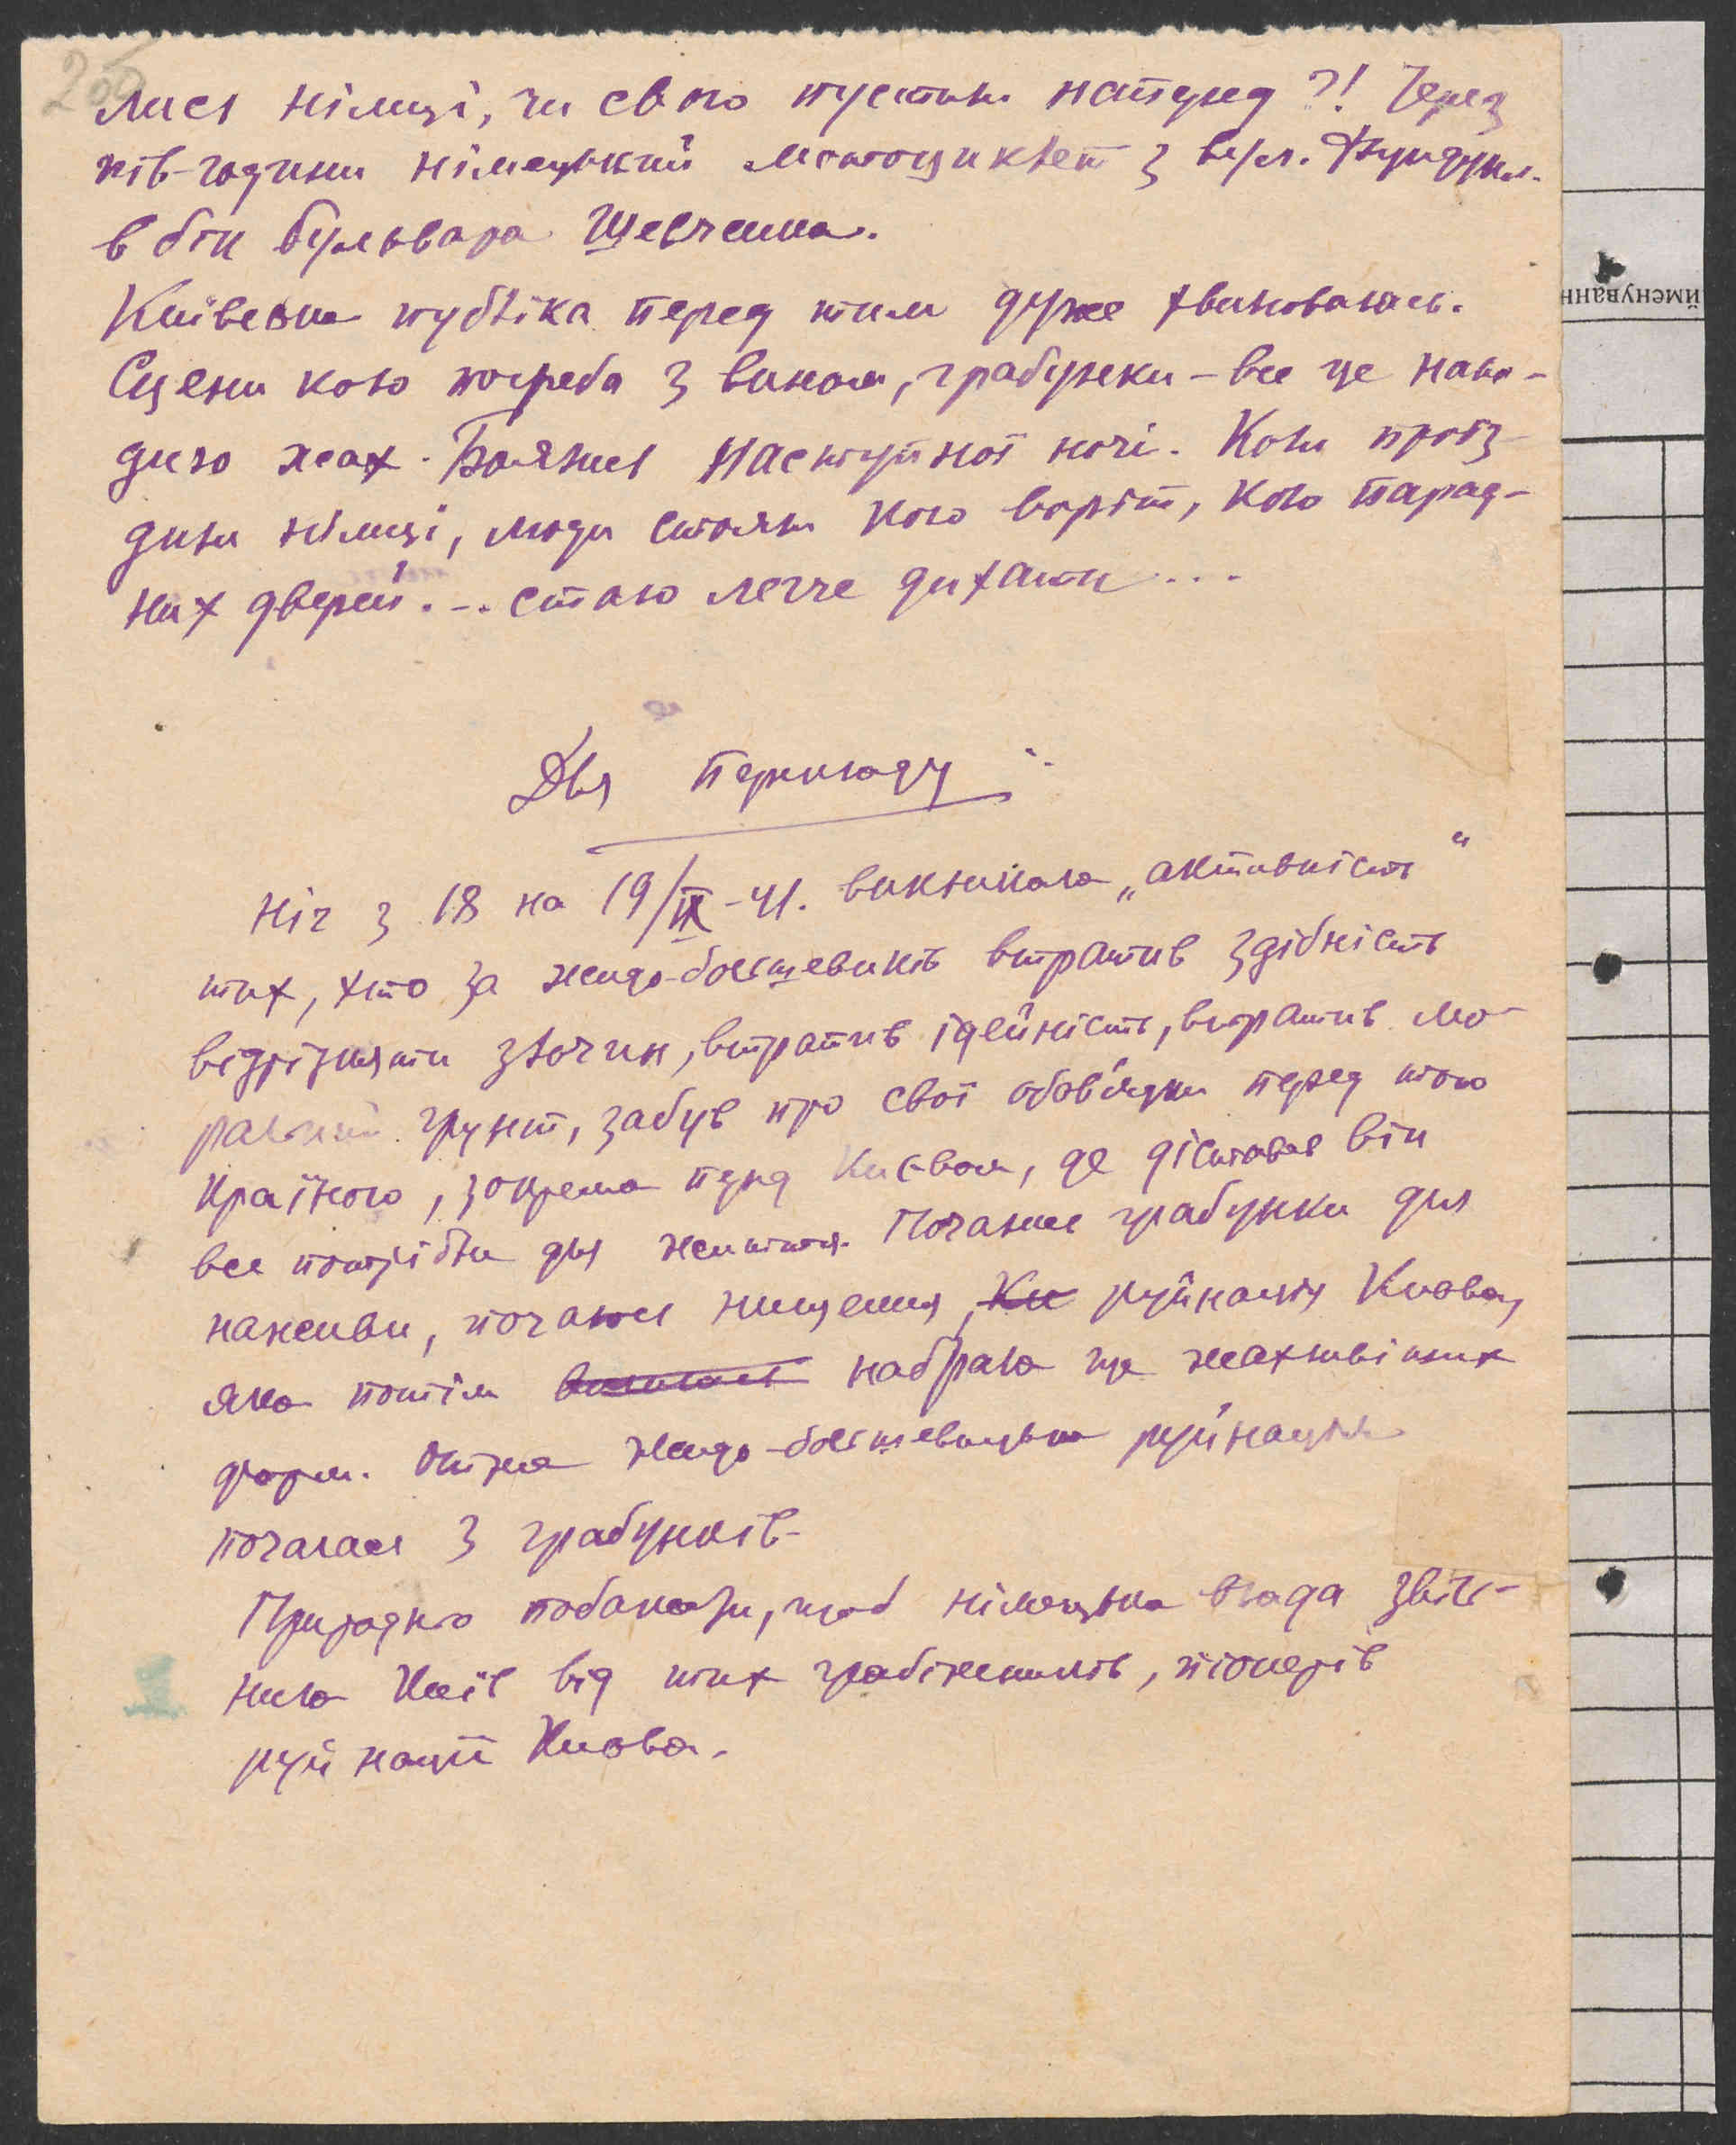 2об
лися німці, чи свого пустили наперед?! Через
пів-години німецький мотоциклет з вул. Фундукл.
в бік бульвара Шевченка.
Київська публіка перед тим дуже хвилювалась.
Сцени коло погреба з вином, грабунки – все це наво-
дило жах. Боялися наступної ночі. Коли проїз-
дили німці, люди стояли коло воріт, коло парад-
них дверей... стало легче дихати...
Для перекладу
Ніч з 18 на 19/IX-41. викликала „активність“
тих, хто за жидо-большевиків втратив здібність
відрізняти злочин, втратив ідейність, втратив мо-
ральний грунт, забув про свої обов'язки перед тою
країною, зокрема перед Києвом, де діставав він
все потрібне для життя. Почалися грабунки для
наживи, почалося нищення, Ки руйнація Києва,
яка потім набрала ще жахливіших
форм. Отже жидо-большевицька руйнація
почалася з грабунків.
Природно побажати, щоб німецька влада звіль-
нила Київ від тих грабіжників, піонерів
руйнації Києва.
йменуванн